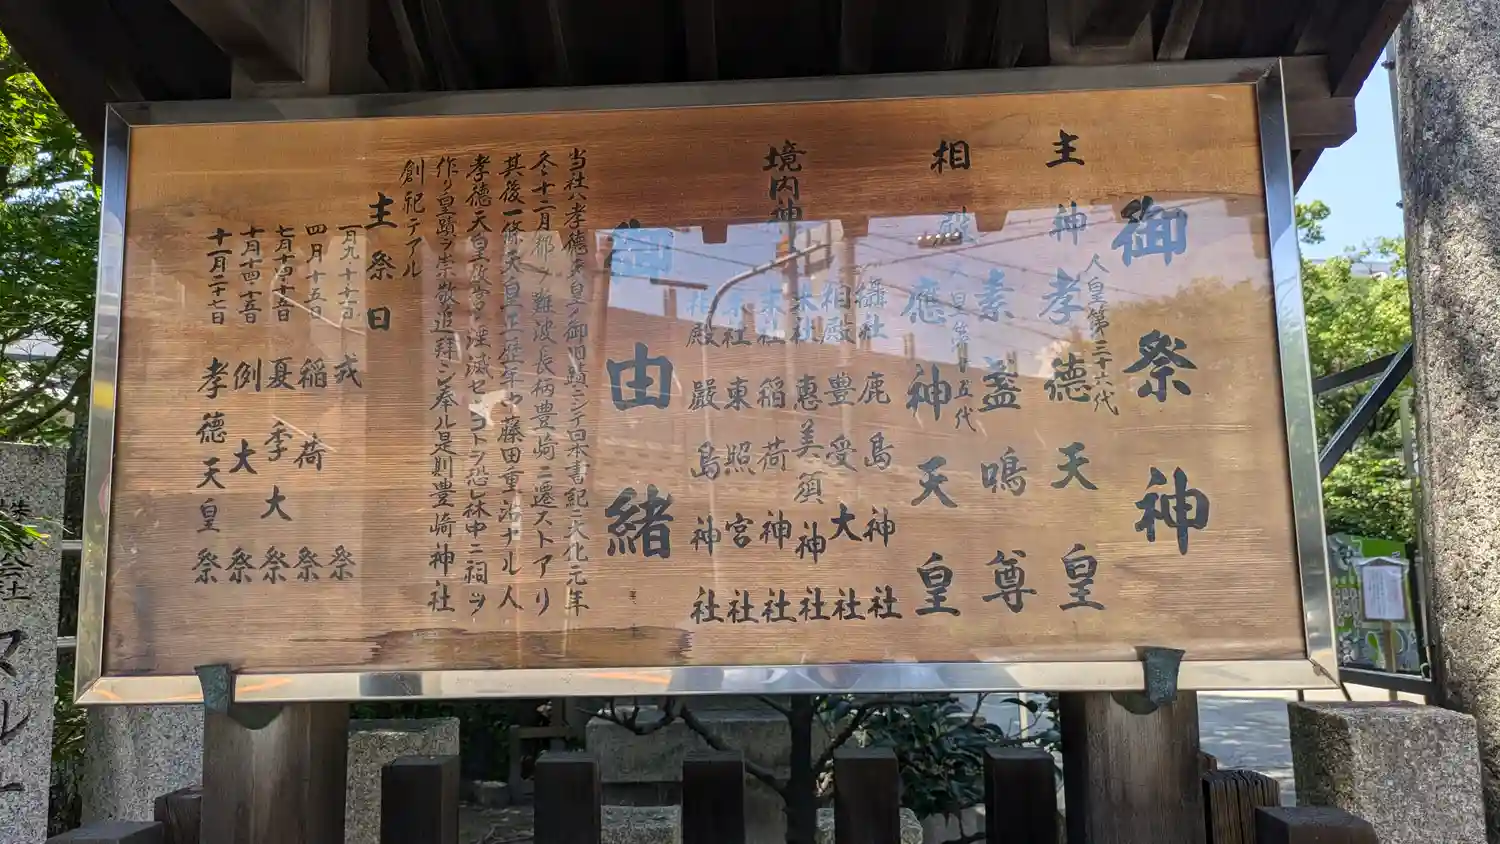 御祭神
主神 孝德天皇
人皇第三十六代
相殿 素盞鳴尊
應神天皇
人皇第十五代
境内神
攝社 鹿島神社
相殿 豊受大社
末社 恵美須神社
末社 稲荷神社
末社 東照宮社
相殿 嚴島神社
御由緒
当社ハ孝德天皇ノ御旧蹟ニシテ日本書紀ニ大化元年
冬十二月都ヲ難波長柄豊崎ニ遷ストアリ
其後一條天皇正暦年中藤田重治ナル人
孝徳天皇故宮ノ湮滅セ
コトヲ恐レ林中ニ祠ヲ
作リ皇蹟ヲ崇敬追拜シ奉ル是則豊崎神社
創祀テアル
主祭日
戎祭
四月十五日 稲荷祭
七月十四十五日 夏季大祭
十月十四十五日 例大祭
十一月二十七日 孝徳天皇祭
株式会社マルト